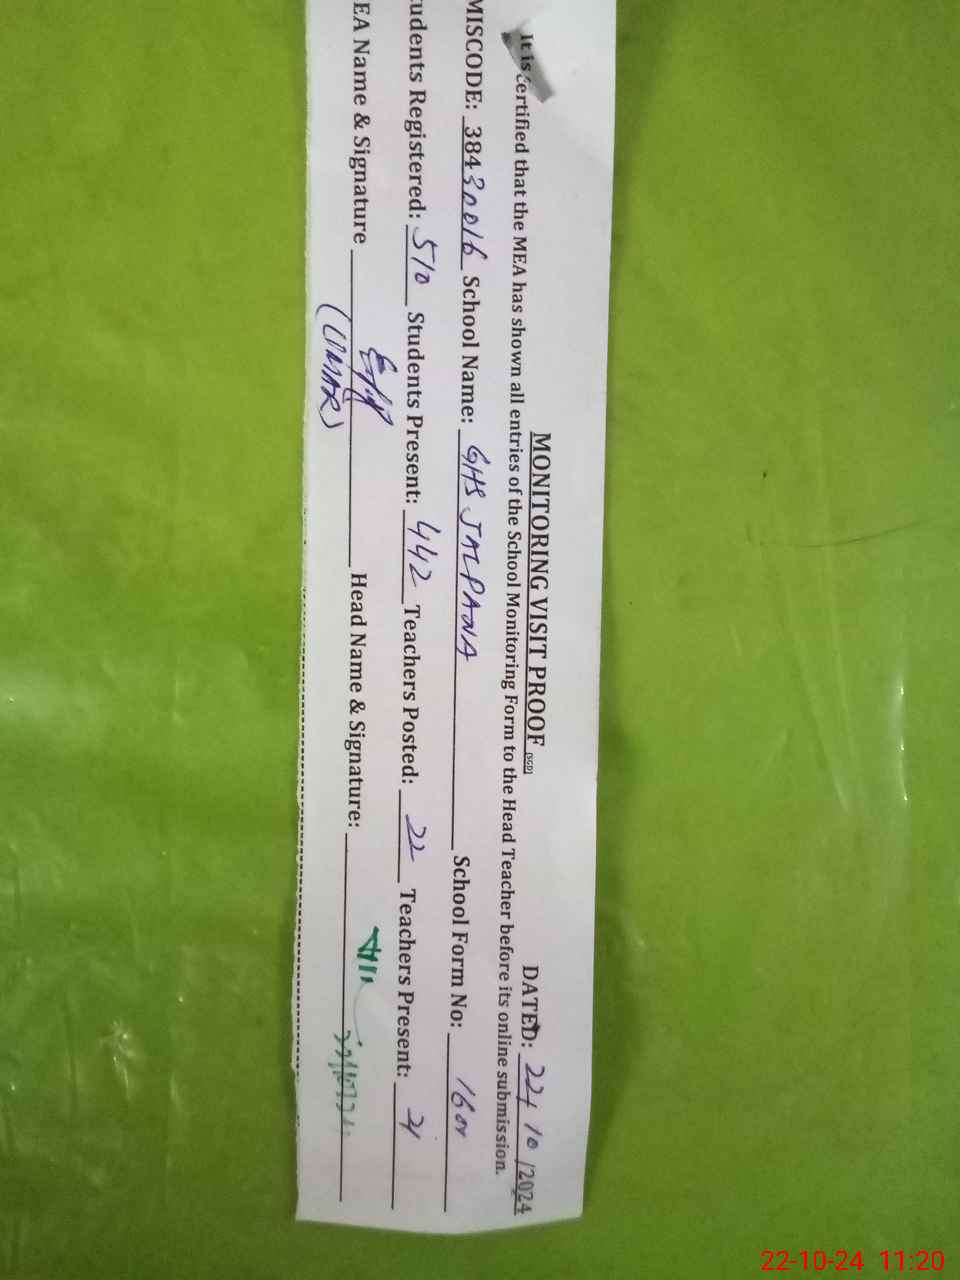 MONITORING VISIT PROOF (SGD) DATED: 22/10/2024
It is certified that the MEA has shown all entries of the School Monitoring Form to the Head Teacher before its online submission.
MISCODE: 38430016 School Name: GHS JALPANA School Form No:
udents Registered: 510 Students Present: 442 Teachers Posted: 22 Teachers Present: 21
EA Name & Signature (UMAR) Head Name & Signature:
22-10-24 11:20